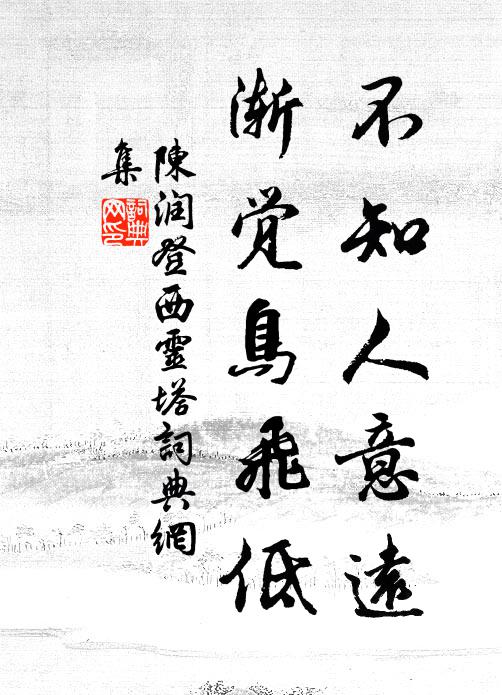 不知人意遠
渐觉鳥飛低
陳润登西靈塔詞典網
集
詞典
网印